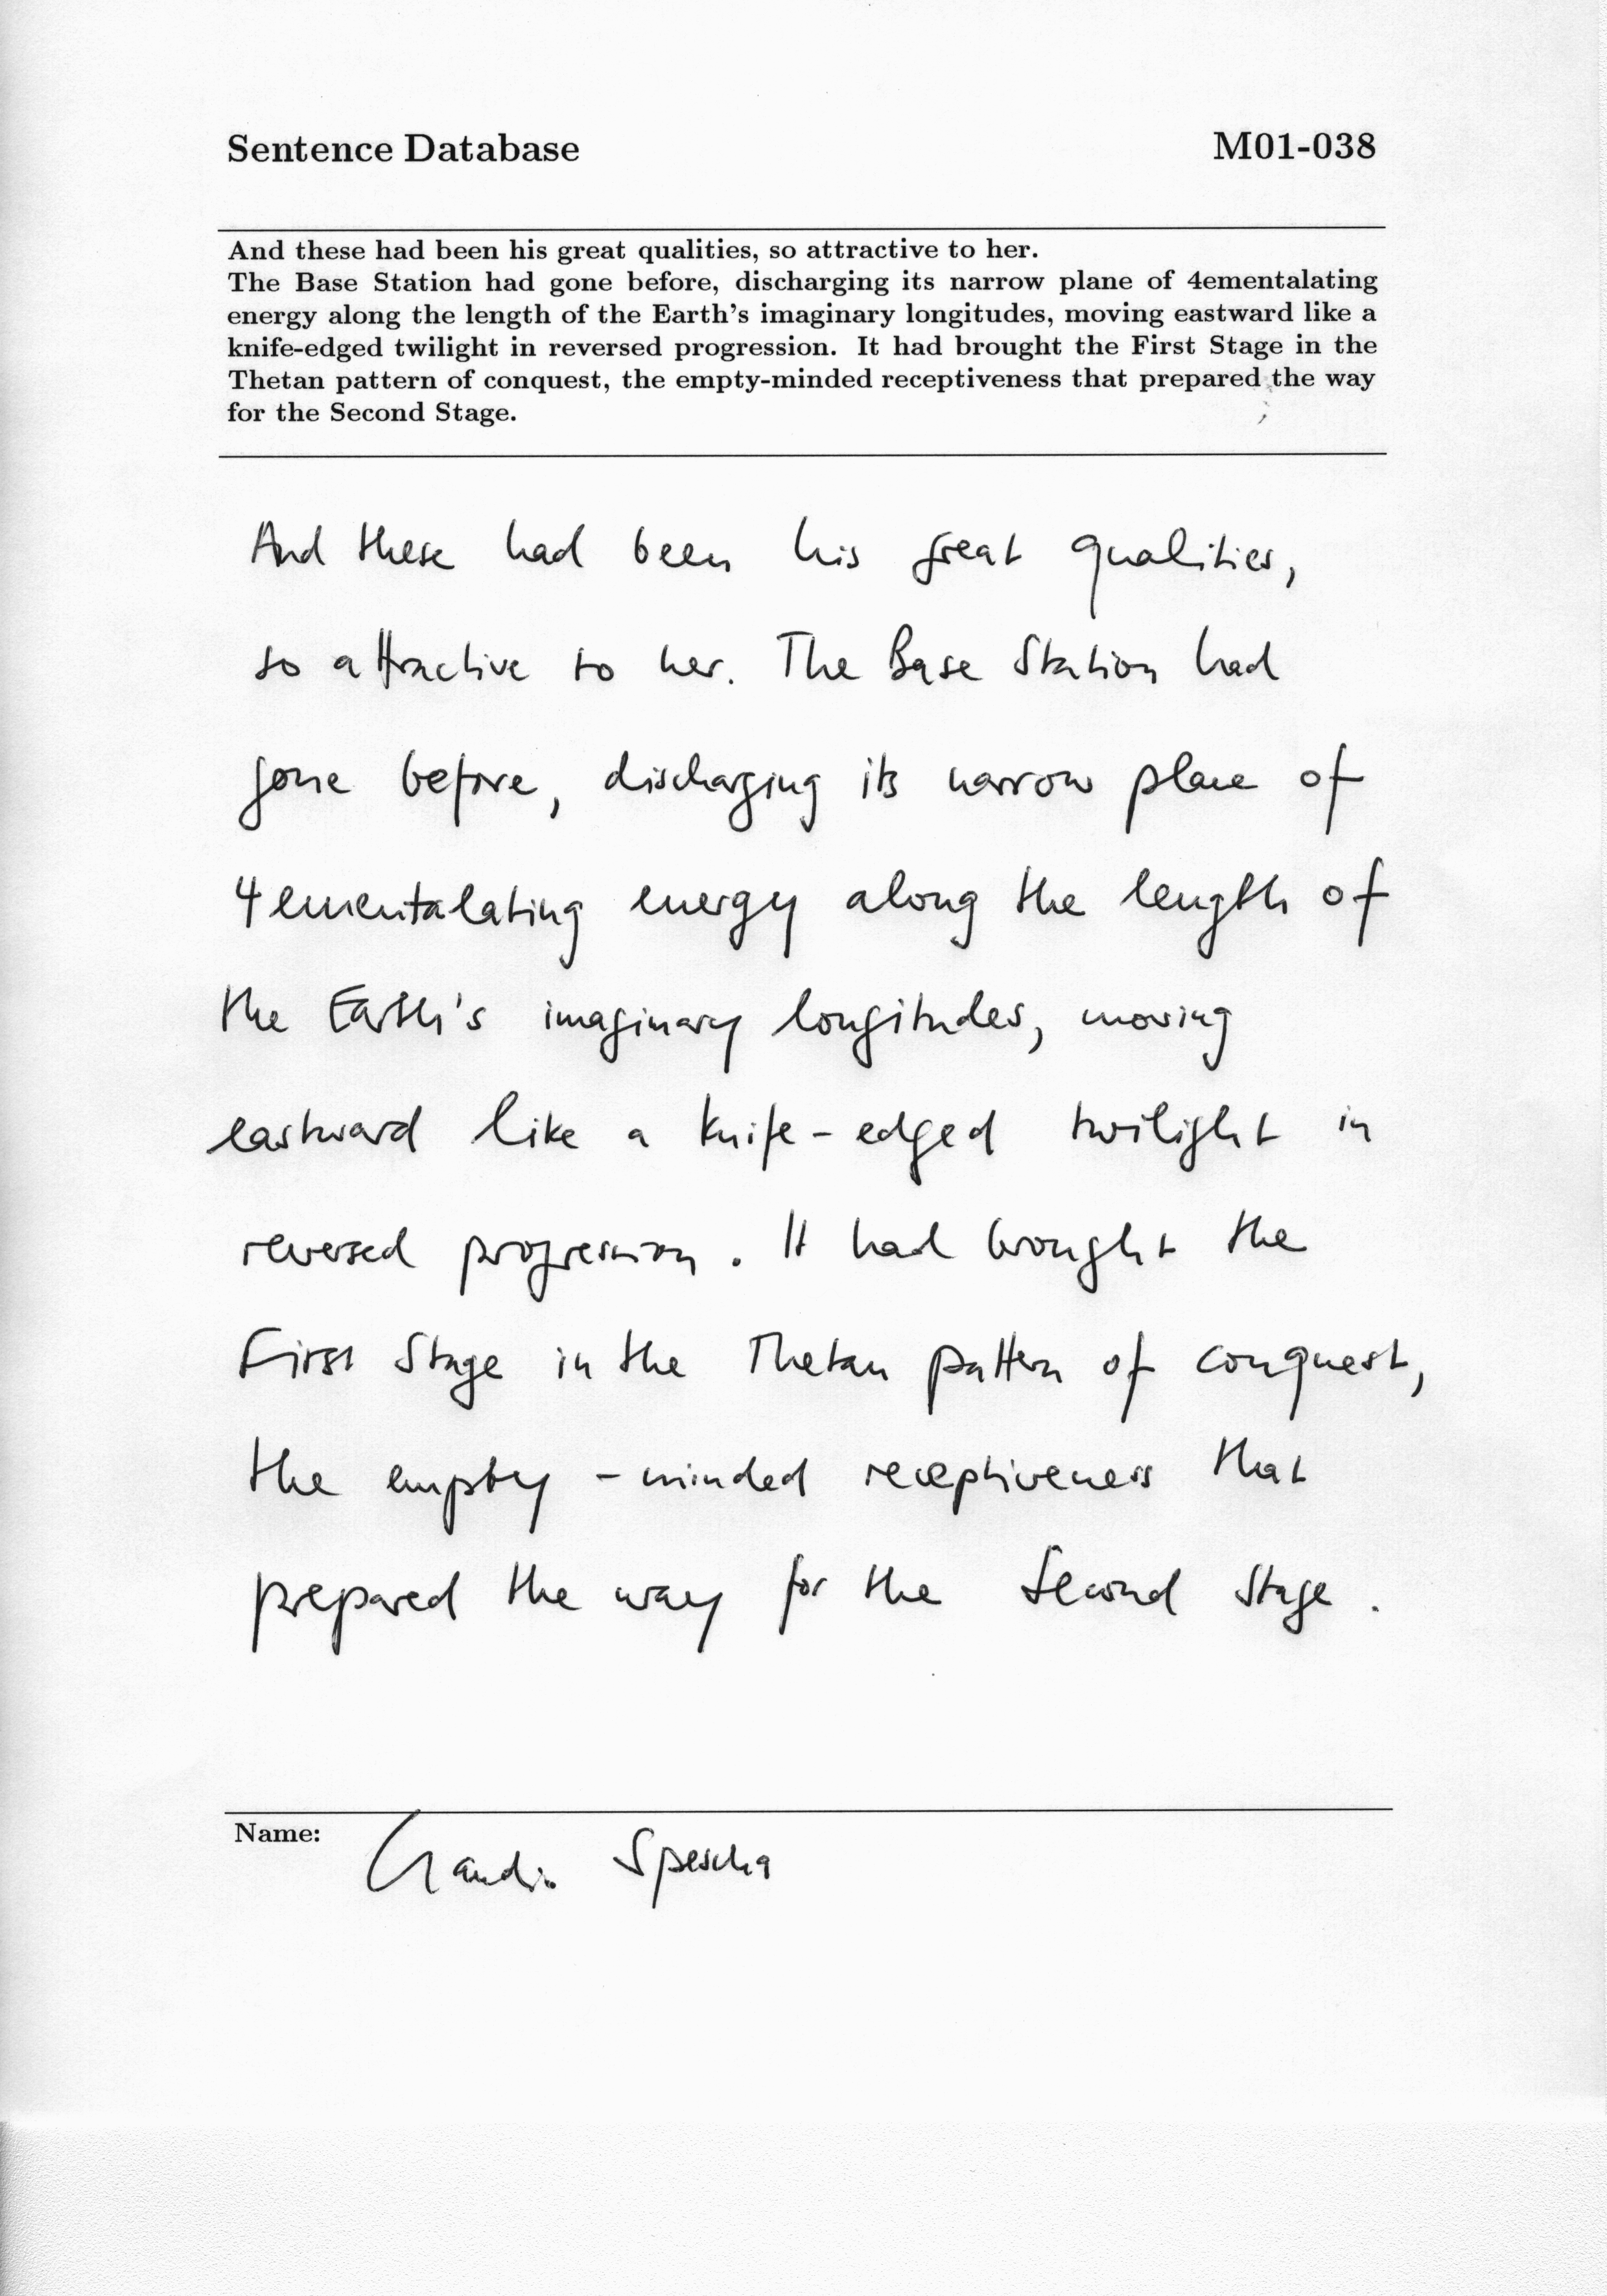 Sentence Database M01-038
And these had been his great qualities, so attractive to her.
The Base Station had gone before, discharging its narrow plane of 4ementalating
energy along the length of the Earth's imaginary longitudes, moving eastward like a
knife-edged twilight in reversed progression. It had brought the First Stage in the
Thetan pattern of conquest, the empty-minded receptiveness that prepared the way
for the Second Stage.
And these had been his great qualities,
so attractive to her. The Base Station had
gone before, discharging its narrow plane of
4ementalating energy along the length of
the Earth's imaginary longitudes, moving
eastward like a knife-edged twilight in
reversed progression. It had brought the
First Stage in the Thetan pattern of conquest,
the empty-minded receptiveness that
prepared the way for the Second Stage.
Name: Spescha